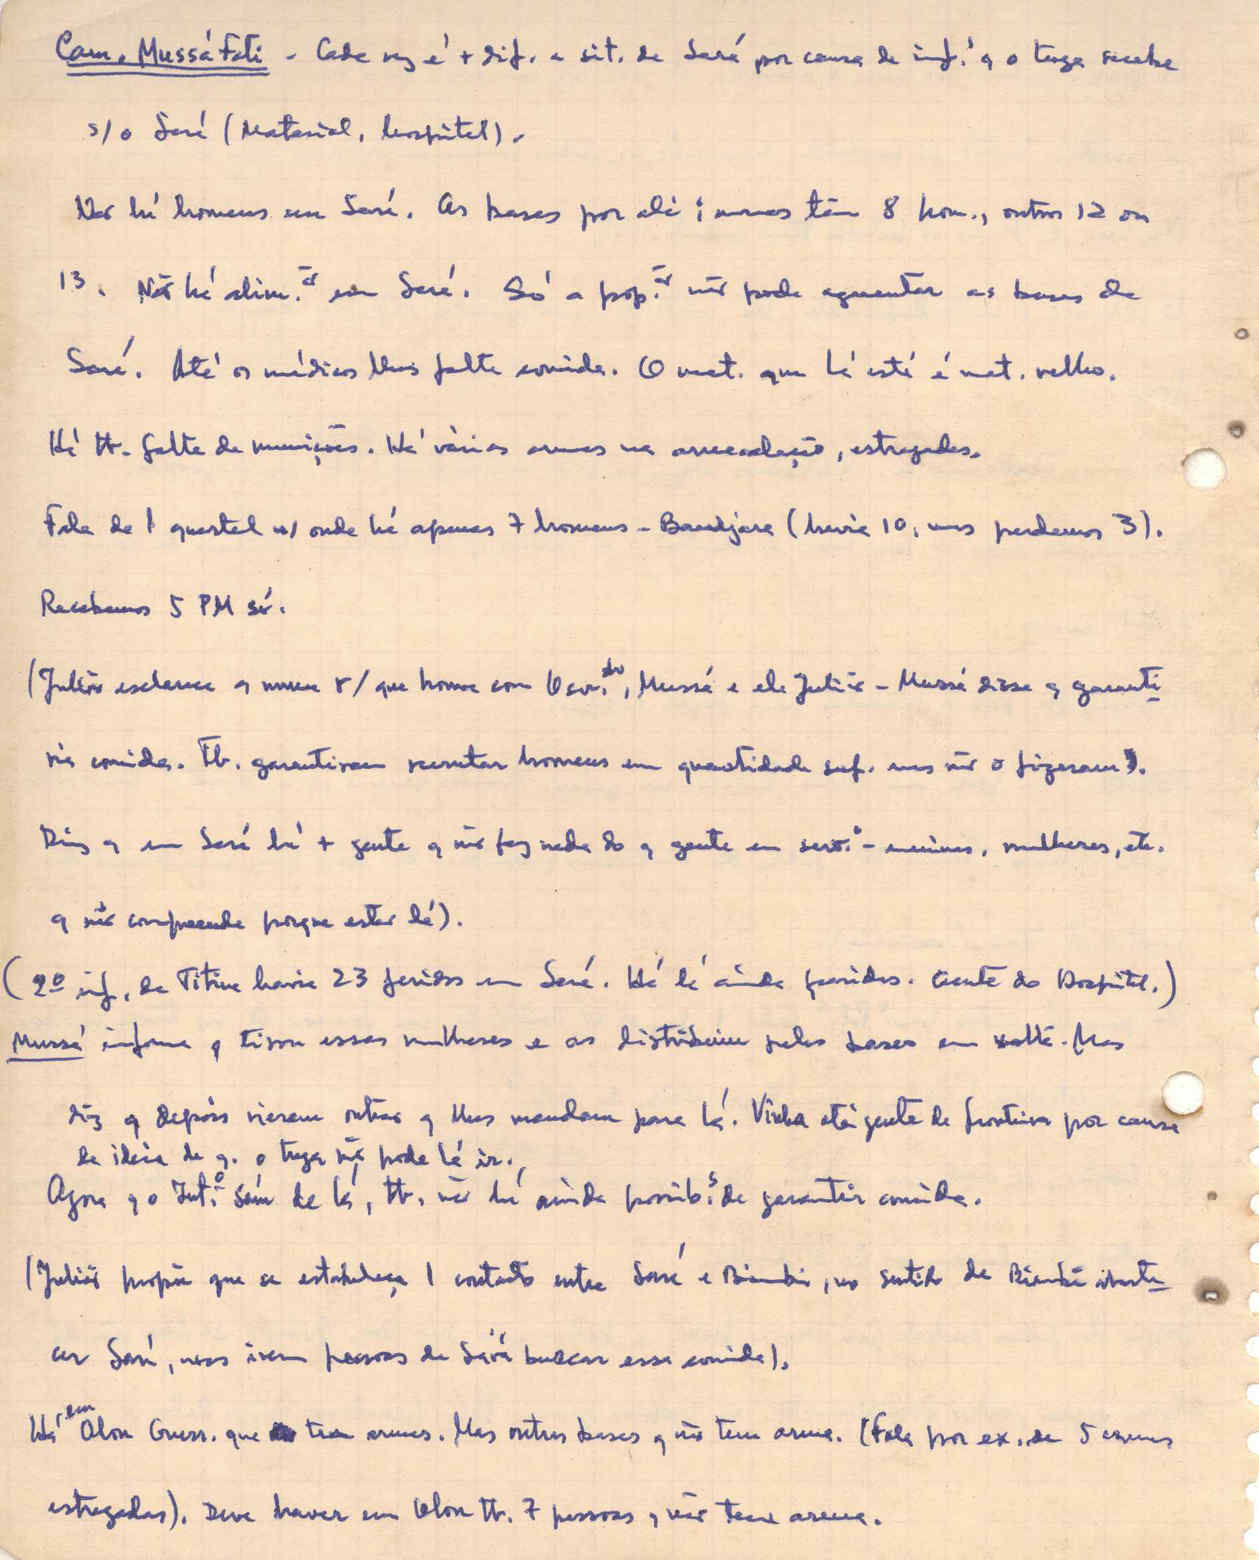 Cam. Mussá Fati - Cada vez é + dif. a sit. de Sará por causa de inf.s q o tuga recebe
s/o Sará (Material, hospital).
Não há homens em Sará. As bases por ali: umas têm 8 hom., outras 12 ou
13. Não há alim.ão em Sará. Só a pop.ão não pode aguentar as bases de
Sará. Até os médicos lhes falta comida. O mat. que lá está é mat. velho.
Há tb. falta de munições. Há várias armas na arrecadação, estragadas.
Fala de 1 quartel onde há apenas 7 homens - Bandjara (havia 10, mas perdemos 3).
Recebemos 5 PM só.
(Julião esclarece q numa r/ que houve com Osv.do, Mussá e ele Julião - Mussá disse q garanti
ria comida. Tb. garantiram recrutar homens em quantidade suf. mas não o fizeram).
Diz q em Sará há + gente q não faz nada do q gente em serv.o - meninos, mulheres, etc.
q não compreende porque estar lá).
(2º inf. de Titina havia 23 feridos em Sará. Há lá ainda feridos. Gente do Hospital.)
Mussá informa q tirou essas mulheres e as distribuiu pelas bases em volta. Mas
diz q depois vieram outras q lhes mandam para lá. Vinha até gente da fronteira por causa
da ideia de q. o tuga não pode lá ir.
Agora q o Jul.o saiu de lá, tb. não há ainda possib.s de garantir comida.
(Julião propõe que se estabeleça 1 contacto entre Sará e Biambi, no sentido de Biambi abaste
cer Sará, mas irem pessoas de Sará buscar essa comida).
Há em Olon Guerr. que têm armas. Mas outras bases q não têm arma. (Fala por ex. de 5 armas
estragadas). Deve haver em Olon tb. 7 pessoas q não têm arma.